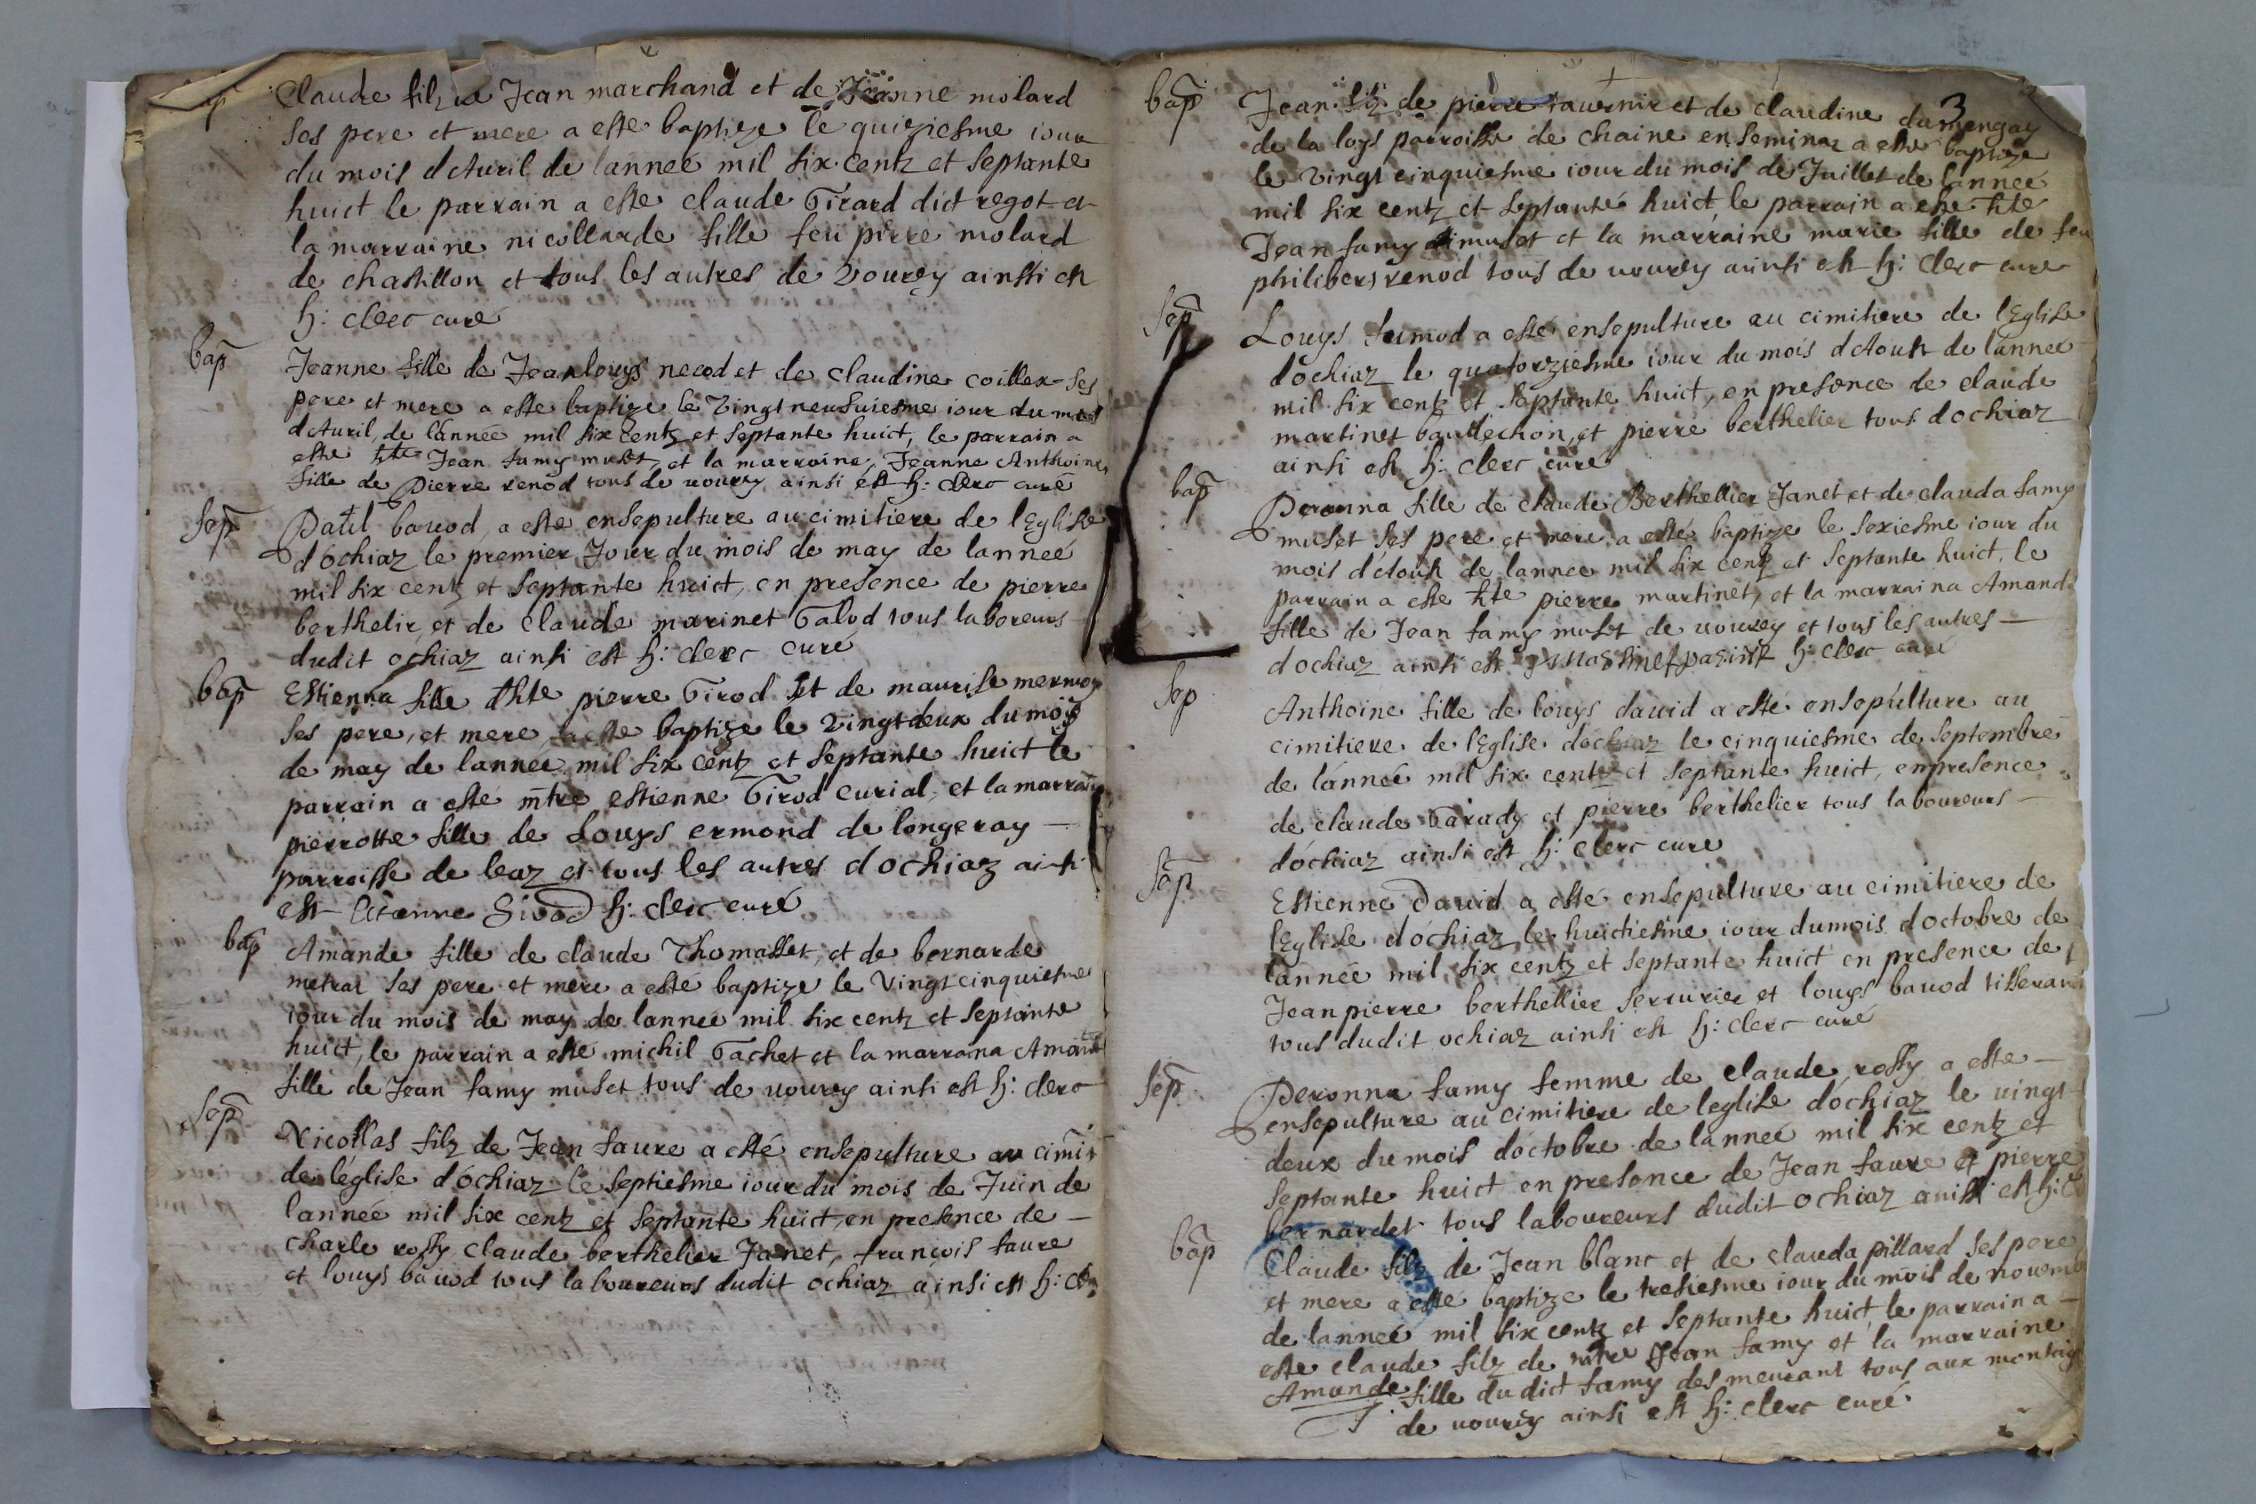 Claude filz de Jean marchand et de Jeanne molard
ses pere et mere a este baptize le quiziesme iour
du mois dAuril de lannee mil six centz et septante
huict le parrain a este claude Girard dict regot et
la marraine nicollarde fille feu pierre molard
de chastillon et tous les autres de vourey ainsi est
h: clerc curé
bap
Jeanne fille de Jean louys necod et de claudine coillex ses
pere et mere a este baptize le vingt neufuiesme iour du mois
dAuril, de lannée mil six centz et septante huict, le parrain a
este hte Jean famy muset, et la marraine, Jeanne Anthoine
fille de Pierre renod tous de vourey ainsi est h: clerc curé
sep
Paul bauod, a este ensepulture au cimitiere de lEglise
dóchiaz le premier Jour du mois de may de lanneé
mil six centz et septante huict, en presence de pierre
berthelir, et de Claude marinet Galod tous laboreurs
dudit ochiaz ainsi est h: clerc curé
bap
Estienna fille dhte pierre Girod et de maurise mermoz
ses pere, et mere, a este baptize le vingt deux du mois
de may de lannee mil six centz et septante huict le
parrain a este mtre estienne Girod curial, et la marraine
pierrotte fille de Louys ermond de longeray
parroisse de leaz et tous les autres dochiaz ainsi
est Etienne Girod h: clerc curé
bap
Amande fille de claude Thomasset, et de bernarde
metral ses pere et mere a esté baptize le vingt cinquiesme
iour du mois de may de lanneé mil six centz et septante
huict, le parrain a esté michil Gachet et la marraina Amande
fille de Jean famy muset tous de vourey ainsi est h: clerc
sep
Nicollas filz de Jean faure a esté ensepulture au cimit
de léglise dóchiaz le septiesme iour du mois de Juin de
lannée mil six centz et septante huict, en presence de
charle rossy claude berthelier Janet, françois faure
et louys bauod tous laboureurs dudit ochiaz ainsi est h: cl
3
bap
Jean filz de pierre tauernir et de claudine dumengay
de la loys parroisse de chaine en seminaz a esté baptize
le vingt cinquiesme iour du mois de Juillet de lanneé
mil six centz et septante huict, le parrain a este hte
Jean famy muset et la marraine marie fille de feu
philibert renod tous de vourey ainsi est h: clerc cure
sep
Louys Jeimod a esté ensepulture au cimitiere de lEglise
dochiaz le quatorziesme iour du mois dAoust de lannee
mil six centz et septante huict, en presence de claude
martinet baullechon, et pierre berthelier tous dochiaz
ainsi est h: clerc curé
bap
Peronna fille de claude Berthellier Janet et de clauda famy
muset ses pere et mere a esté baptize le sexiesme iour du
mois dAoust de lannee mil six centz et septante huict, le
parrain a este hte pierre martinet, et la marraina Amande
fille de Jean famy muset de vourey et tous les autres
dochiaz ainsi est P martinet parint h: clerc curé
sep
Anthoine fille de louys dauid a esté ensepulture au
cimitiere de lEglise dóchiaz le cinquiesme de septembre
de lánneé mil six centz et septante huict, en presence
de claude Garady et pierre berthelier tous laboureurs
dóchiaz ainsi est h: clerc cure
sep
Estienne Dauid a esté ensepulture au cimitiere de
lEglise dóchiaz, le huictiesme iour du mois doctobre de
lánnée mil six centz et septante huict en presence de
Jean pierre berthellier serrurier et louys bauod tisserand
tous dudit ochiaz ainsi est h: clerc curé
sep
Peronna famy femme de claude rossy a este
ensepulture au cimitiere de leglise dóchiaz le vingt
deux du mois doctobre de lanneé mil six centz et
septante huict en presence de Jean faure et pierre
bernardet tous laboureurs dudit ochiaz ainsi est h: cl
bap
Claude filz de Jean blanc et de clauda pillard ses pere
et mere a esté baptize le tresiesme iour du mois de nouembre
de lanneé mil six centz et septante huict, le parrain a
este claude filz de mtre Jean famy et la marraine
Amande fille dudict famy desmeurant tous aux montaig
de vourey ainsi est h: clerc curé